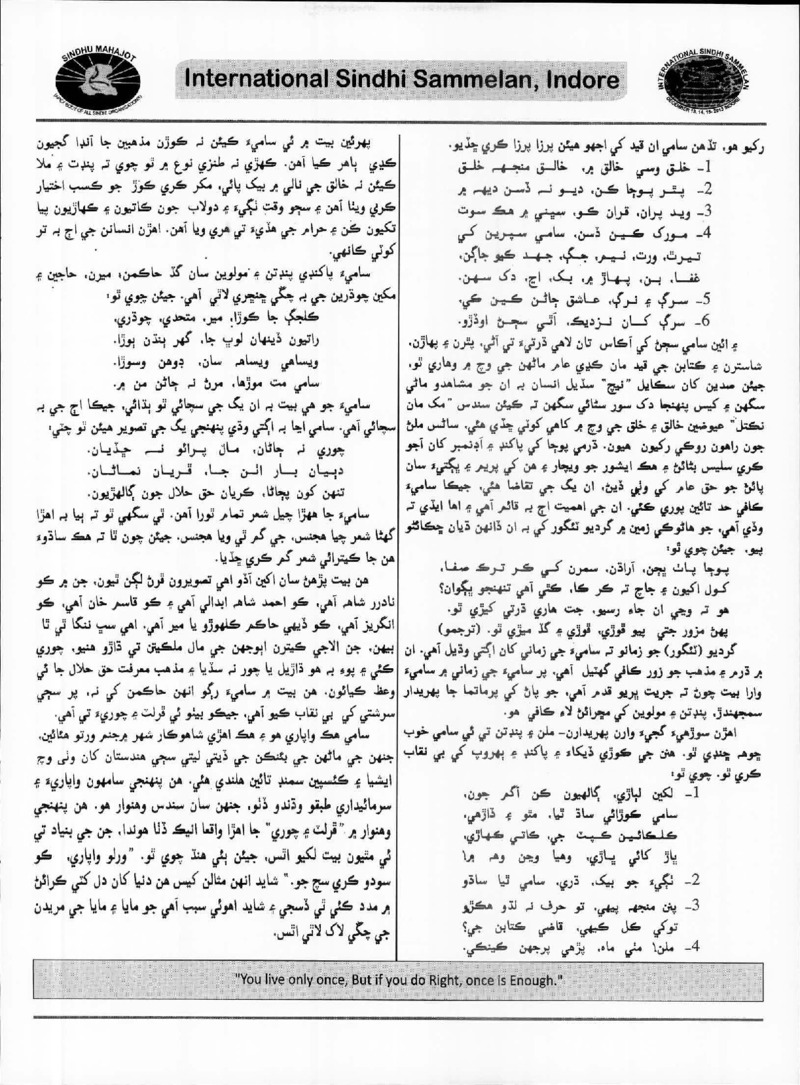 SINDHU MAHAJOT
International Sindhi Sammelan, Indore
INTERNATIONAL SINDHI SAMMELAN
رکيو هو، تڏهن سامي ان قيد کي اجهو هيئن پرزا پرزا ڪري ڇڏيو.
1- خلق وسي خالق ۾، خالق منجهہ خلق
2- پٿر پوڄا ڪن، ديو نہ ڏسن ديهہ ۾
3- ويد پران، قران ڪو، سڀني ۾ هڪ سوت
4- مورک ڪين ڏسن، سامي سپرين کي
تيرٿ، ورت، نيم، جڳ، جهد ڪيو جاڳن،
غفا، ٻن، پهاڙ ۾، بک، اڃ، دک سهن.
5- سرڳ ۽ نرڳ، عاشق ڄاڻن ڪين کي،
6- سرڳ کان نزديڪ، آٿي سڄڻ اوڏڙو.
۽ ائين سامي سڄڻ کي آڪاس تان لاهي ڌرتيءَ تي آڻي، پٿرن ۽ پهاڙن،
شاسترن ۽ ڪتابن جي قيد مان ڪڍي عام ماڻهن جي وچ ۾ وهاري ٿو،
جيئن صدين کان سڪايل "نيچ" سڏيل انسان بہ ان جو مشاهدو ماڻي
سگهن ۽ کيس پنهنجا دک سور سڻائي سگهن تہ ڪيئن سندس "مک مان
نڪتل" عيوضين خالق ۽ خلق جي وچ ۾ کاهي کوٽي ڇڏي هئي. ساڻس ملڻ
جون راهون روڪي رکيون هيون. ڌرمي پوڄا کي پاکنڊ ۽ آڊنمبر کان آجو
ڪري سليس بڻائڻ ۽ هڪ ايشور جو ويچار ۽ هن کي پريم ۽ ڀڳتيءَ سان
پائڻ جو حق عام کي وٺي ڏيڻ، ان يگ جي تقاضا هئي، جيڪا ساميءَ
ڪافي حد تائين پوري ڪئي. ان جي اهميت اڄ بہ قائم آهي ۽ اها ايڏي تہ
وڏي آهي، جو هاڻوڪي زمين ۾ گرديو ٽئگور کي بہ ان ڏانهن ڌيان ڇڪائڻو
پيو. جيئن چوي ٿو:
پوڄا پاٺ ڀڄن، آراڌن، سمرن کي ڪر ترڪ صفا،
کول اکيون ۽ جاچ تہ ڪر ڪا، ڪٿي آهي تنهنجو ڀڳوان؟
هو تہ وڃي ان جاءِ رسيو، جت هاري ڌرتي کيڙي ٿو.
پهڻ مزور جتي پيو ڦوڙي، ڦوڙي ۽ گڏ ميڙي ٿو. (ترجمو)
گرديو (ٽئگور) جو زمانو تہ ساميءَ جي زماني کان اڳتي وڌيل آهي. ان
۾ ڌرم ۽ مذهب جو زور ڪافي گهٽيل آهي، پر ساميءَ جي زماني ۾ ساميءَ
وارا بيت چوڻ تہ جريت ڀريو قدم آهي، جو پاڻ کي پرماتما جا پهريدار
سمجهندڙ، پنڊتن ۽ مولوين کي مڇرائڻ لاءِ ڪافي هو.
اهڙن سوڙهيءَ گجيءَ وارن پهريدارن- ملن ۽ پنڊتن تي ئي سامي خوب
چوهہ ڇنڊي ٿو. هنن جي ڪوڙي ڏيکاءَ ۽ پاکنڊ ۽ بهروپ کي بي نقاب
ڪري ٿو. چوي ٿو:
1- لکين لٻاڙي، ڳالهيون ڪن اگم جون،
سامي ڪوڙائي ساڌ ٿيا، مٿو ۽ ڏاڙهي،
ڪلڪائين ڪپٽ جي، ڪاتي ڪهاڙي،
پاڙ کائي پاڙي، وهيا وڃن وهہ ۾!
2- ٺڳيءَ جو ٻيک، ڌري، سامي ٿيا ساڌو
3- پنن منجهہ پيهي، تو حرف نہ لڌو هڪڙو
توکي ڪل ڪيهي، قاضي ڪتابن جي؟
4- ملن! مٺي ماه، پڙهي پرجهن ڪينڪي.
پهرئين بيت ۾ ئي ساميءَ ڪيئن نہ ڪوڙن مذهبين جا آنڊا گجيون
ڪڍي ٻاهر ڪيا آهن. ڪهڙي نہ طنزي نوع ۾ ٿو چوي تہ پنڊت ۽ ملا
ڪيئن نہ خالق جي نالي ۾ ٻيک پائي، مڪر ڪري ڪوڙ جو ڪسب اختيار
ڪري ويٺا آهن ۽ سڄو وقت ٺڳيءَ ۽ دولاب جون ڪاتيون ۽ ڪهاڙيون پيا
تکيون ڪن ۽ حرام جي هڏيءَ تي هري ويا آهن. اهڙن انسانن جي اڄ بہ تر
کوٽي ڪانهي.
ساميءَ پاکنڊي پنڊتن ۽ مولوين سان گڏ حاڪمن، ميرن، حاجين ۽
مکين چوڌرين جي بہ چڱي چنچري لاٿي آهي. جيئن چوي ٿو:
ڪلجڳ جا ڪوڙا، مير، متحدي، چوڌري،
راتيون ڏينهان لوڀ جا، گهر ٻنڌن ٻوڙا.
ويساهي ويساهہ سان، ڏوهن وسوڙا.
سامي مت موڙها، مرڻ نہ ڄاڻن من ۾.
ساميءَ جو هي بيت بہ ان يگ جي سچائي ٿو ٻڌائي، جيڪا اڄ جي بہ
سچائي آهي. سامي اڃا بہ اڳتي وڌي پنهنجي يگ جي تصوير هيئن ٿو چٽي:
چوري نہ ڄاڻان، مال پرائو نہ ڇڏيان.
دٻيان ٻار ائن جا، قربان نماڻان.
تنهن کون پڇاڻا، ڪريان حق حلال جون ڳالهڙيون.
ساميءَ جا ههڙا چيل شعر تمام ٿورا آهن. ٿي سگهي ٿو تہ ٻيا بہ اهڙا
گهڻا شعر چيا هجنس، جي گم ٿي ويا هجنس. جيئن چون ٿا تہ هڪ ساڌوءَ
هن جا ڪيترائي شعر گم ڪري ڇڏيا.
هن بيت پڙهڻ سان اکين آڏو اهي تصويرون ڦرڻ لڳن ٿيون، جن ۾ ڪو
نادر شاهہ آهي، ڪو احمد شاهہ ابدالي آهي ۽ ڪو قاسم خان آهي، ڪو
انگريز آهي، ڪو ڏيهي حاڪم ڪلهوڙو يا مير آهي. اهي سڀ ننگا ٿي ٿا
بيهن، جن الاجي ڪيترن اٻوجهن جي مال ملڪيتن تي ڌاڙو هنيو، چوري
ڪئي ۽ پوءِ بہ هو ڌاڙيل يا چور نہ سڏيا ۽ مذهب معرفت حق حلال جا ئي
وعظ ڪيائون. هن بيت ۾ ساميءَ رڳو انهن حاڪمن کي نہ، پر سڄي
سرشتي کي بي نقاب ڪيو آهي، جيڪو بيٺو ئي ڦرلٽ ۽ چوريءَ تي آهي.
سامي هڪ واپاري هو ۽ هڪ اهڙي شاهوڪار شهر ۾ جنم ورتو هئائين،
جنهن جي ماڻهن جي بئنڪن جي ڏيتي ليتي سڄي هندستان کان وٺي وچ
ايشيا ۽ ڪئسپين سمنڊ تائين هلندي هئي. هن پنهنجي سامهون واپاريءَ ۽
سرمائيداري طبقو وڌندو ڏٺو، جنهن سان سندس وهنوار هو. هن پنهنجي
وهنوار ۾ "ڦرلٽ ۽ چوري" جا اهڙا واقعا انيڪ ڏٺا هوندا، جن جي بنياد تي
ئي مٿيون بيت لکيو اٿس، جيئن ٻئي هنڌ چوي ٿو. "ورلو واپاري، ڪو
سودو ڪري سچ جو." شايد انهن مثالن کيس هن دنيا کان دل کٽي ڪرائڻ
۾ مدد ڪئي ٿي ڏسجي ۽ شايد اهوئي سبب آهي جو مايا ۽ مايا جي مريدن
جي چڱي لاک لاٿي اٿس.
"You live only once, But if you do Right, once is Enough."